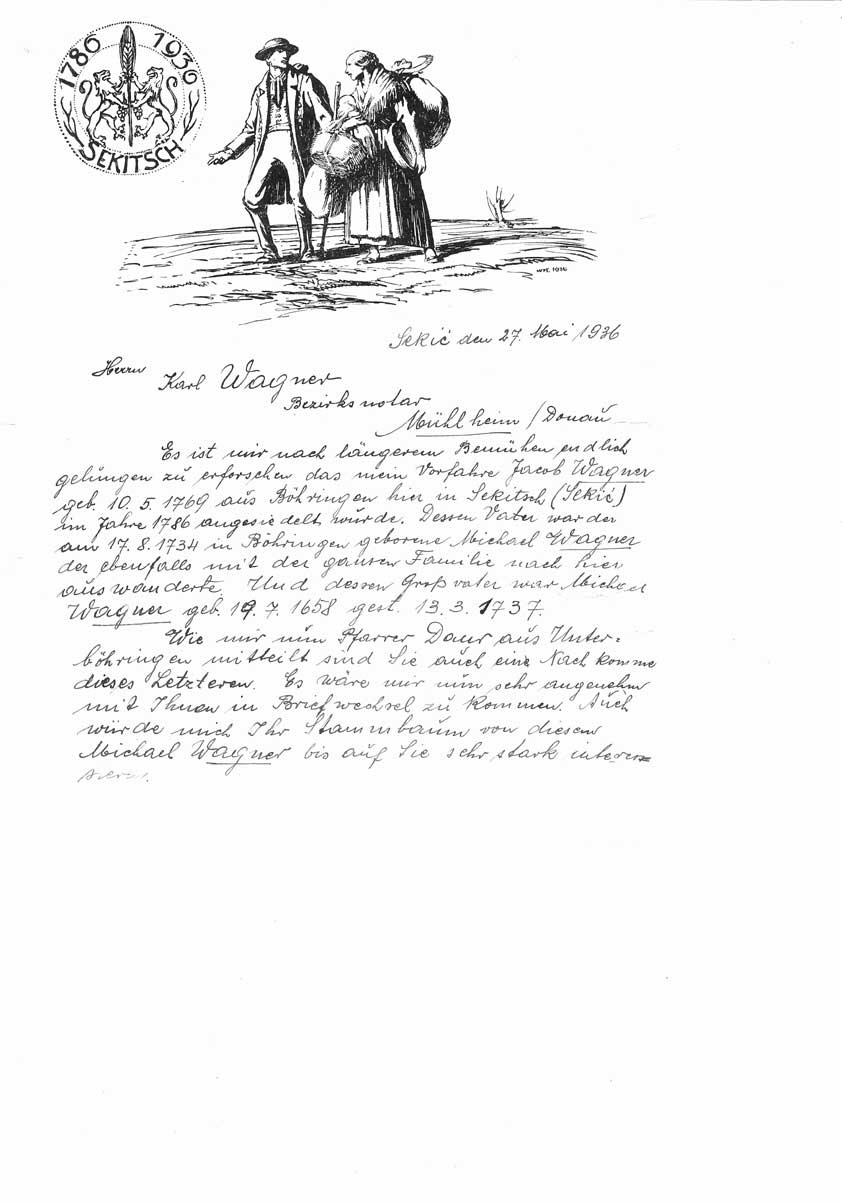 1786 1936
SEKITSCH
WK. 1936
Sekić den 27. Mai 1936
Herrn
Karl Wagner
Bezirksnotar
Mühlheim / Donau
Es ist mir nach längerem Bemühen endlich
gelungen zu erforschen das mein Vorfahre Jacob Wagner
geb. 10. 5. 1769 aus Böhringen hier in Sekitsch (Sekić)
im Jahre 1786 angesiedelt wurde. Dessen Vater war der
am 17. 8. 1734 in Böhringen geborene Michael Wagner
der ebenfalls mit der ganzen Familie nach hier
auswanderte. Und dessen Großvater war Michael
Wagner geb. 19. 7. 1658 gest. 13. 3. 1737.
Wie mir nun Pfarrer Daur aus Unter=
böhringen mitteilt sind Sie auch eine Nachkomme
dieses Letzteren. Es wäre mir nun sehr angenehm
mit Ihnen in Briefwechsel zu kommen. Auch
würde mich Ihr Stammbaum von diesem
Michael Wagner bis auf Sie sehr stark interes=
sieren.